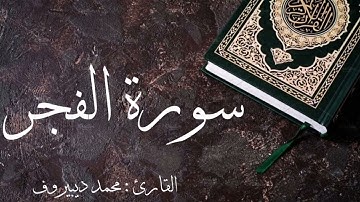 سورة الفجر
القارئ : محمد ديبيروف